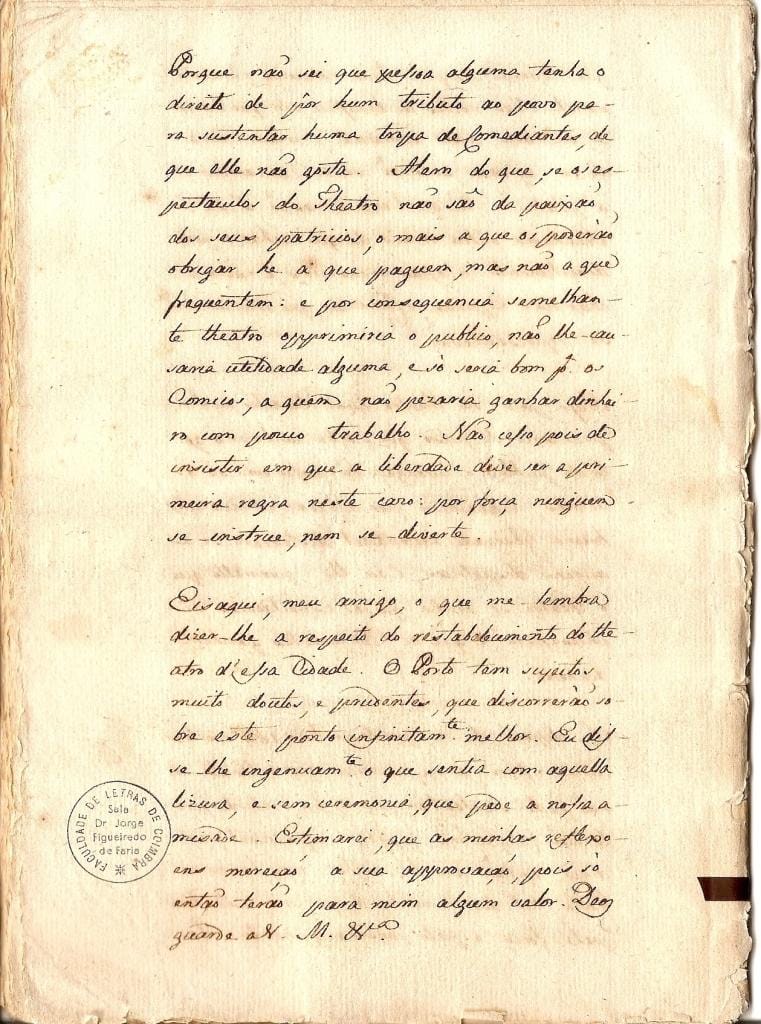 Porque não sei que pessoa alguma tenha o
direito de pôr hum tributo ao povo pa-
ra sustentar huma tropa de Comediantes, de
que elle não gosta. Alem do que, se os es-
pectaculos do Theatro não são da paixão
dos seus patricios, o mais a que os poderão
obrigar he a que paguem, mas não a que
frequentem: e por consequencia semelhan-
te theatro opprimiria o publico, não lhe cau-
saria utilidade alguma, e só seria bom pª. os
Comicos, a quem não pezaria ganhar dinhei-
ro com pouco trabalho. Não cesso pois de
insistir em que a liberdade deve ser a pri-
meira regra neste cazo: por força ninguem
se instrue, nem se diverte.
Eisaqui, meu amigo, o que me lembra
dizer-lhe a respeito do restabelecimento do the-
atro d'essa Cidade. O Porto tem sujeitos
muito doutos, e prudentes, que discorrerão so-
bre este ponto infinitamte. melhor. Eu dis-
se lhe ingenuamte. o que sentia com aquella
lizura, e sem ceremonia, que pede a nossa a-
misade. Estimarei, que as minhas reflexo-
ens mereção a sua approvação, pois só
então terão para mim algum valor. Deos
guarde a V. M. &ª.
FACULDADE DE LETRAS DE COIMBRA
Sala
Dr Jorge
Figueiredo
de Faria